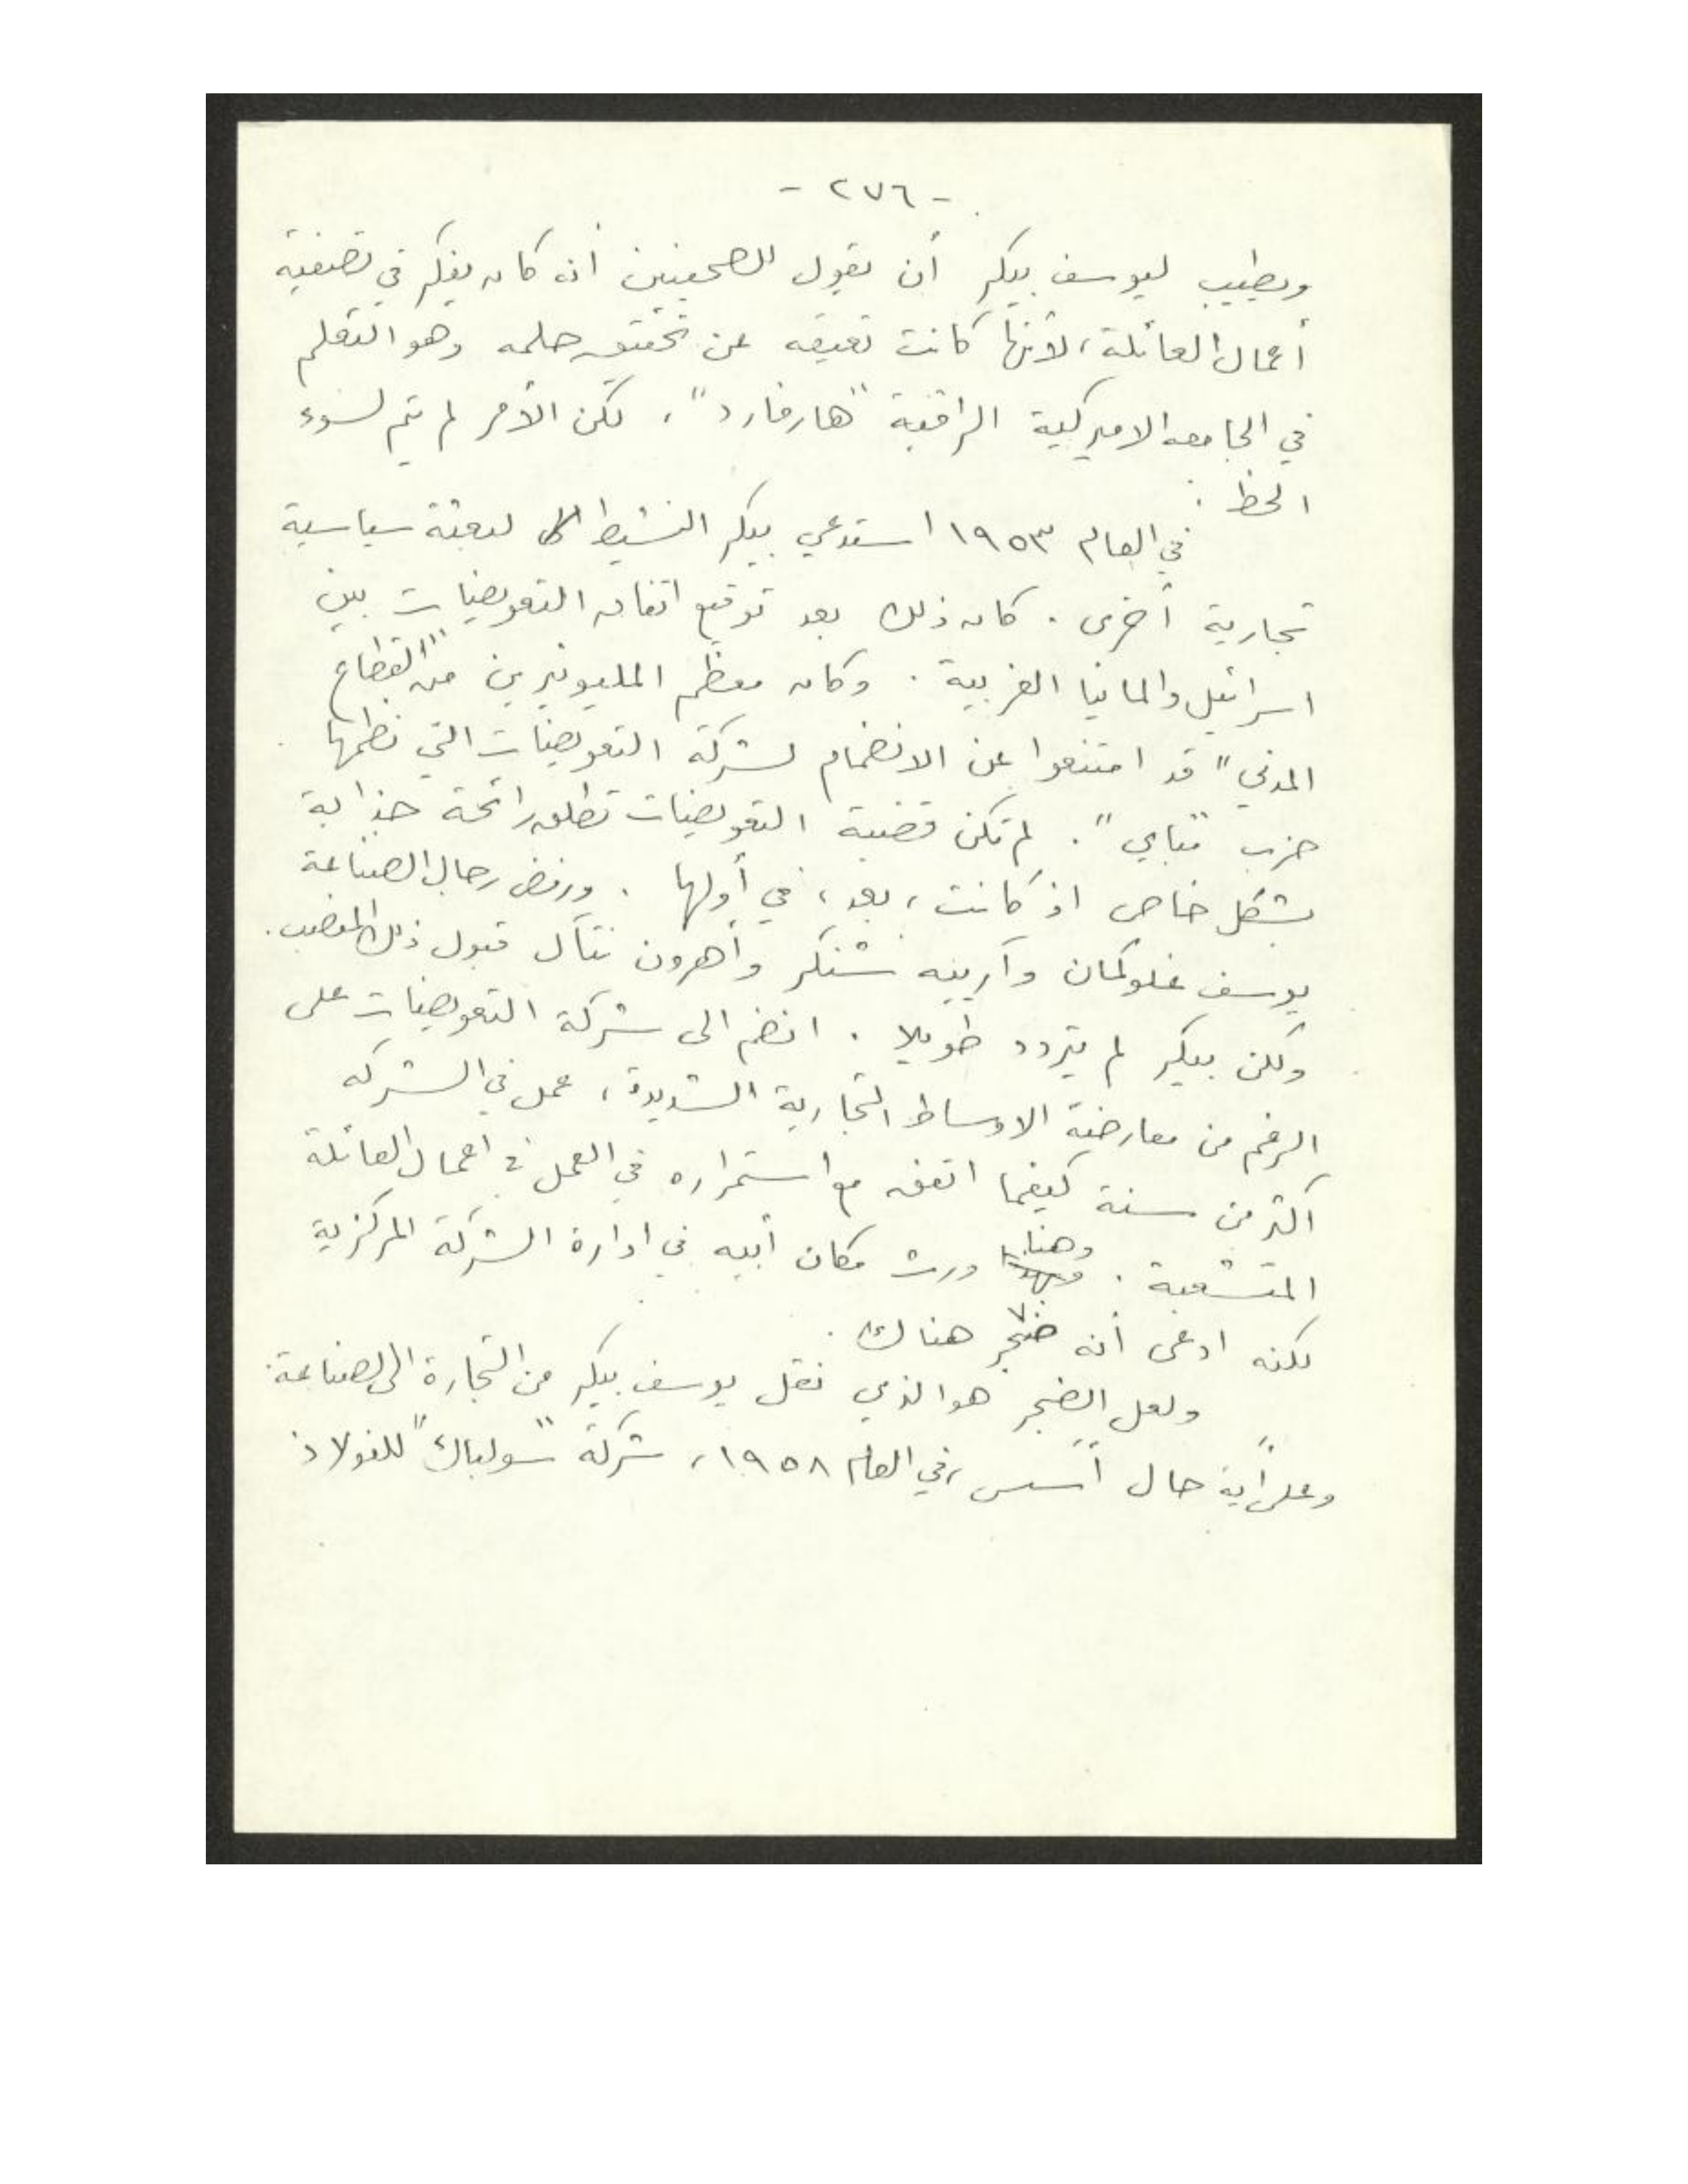 - ٢٧٦ -
ويطيب ليوسف بيكر أن يقول للصحفيين أنه كان يفكر في تصفية
أعمال العائلة، لأنها كانت تعيقه عن تحقيق حلمه وهو التعلم
في الجامعة الاميركية الراقية "هارفارد"، لكن الأمر لم يتم لسوء
الحظ.
في العام ١٩٥٣ استدعي بيكر النشيط لبعثة سياسية
تجارية أخرى. كان ذلك بعد توقيع اتفاق التعويضات بين
اسرائيل والمانيا الغربية. وكان معظم المليونيرين من "القطاع
المدني" قد امتنعوا عن الانضمام لشركة التعويضات التي نظمها
حزب "مباي". لم تكن قضية التعويضات تطلق رائحة جذابة
بشكل خاص اذ كانت، بعد، في أولها. ورفض رجال الصناعة
يوسف غلوكمان وآرييه شنكر وأهرون نتال قبول ذلك المنصب.
ولكن بيكر لم يتردد طويلا. انضم الى شركة التعويضات على
الرغم من معارضة الاوساط التجارية الشديدة، عمل في الشركة
أكثر من سنة كيفما اتفق مع استمراره في العمل في أعمال العائلة
المتشعبة. وهنا ورث مكان أبيه في ادارة الشركة المركزية
لكنه ادعى أنه ضجر هناك.
ولعل الضجر هو الذي نقل يوسف بيكر من التجارة الى الصناعة.
وعلى أية حال أسس، في العام ١٩٥٨، شركة "سولباك" للفولاذ